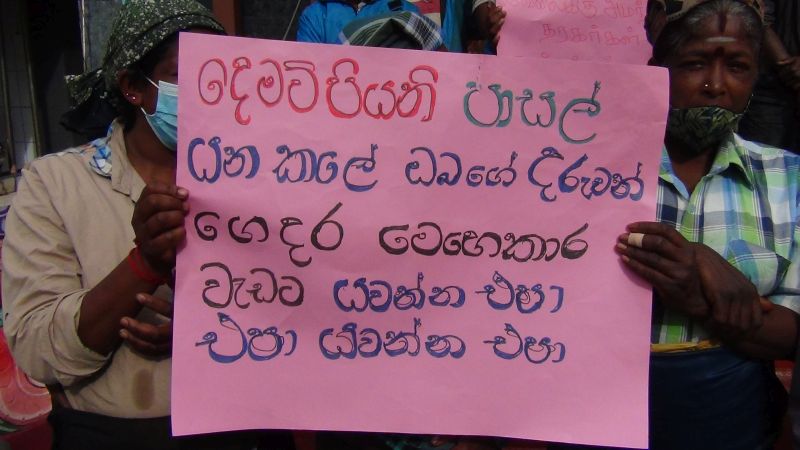 දෙමව්පියනි පාසල්
යන කලේ ඔබගේ දරුවන්
ගෙදර මෙහෙකාර
වැඩට යවන්න එපා
එපා යවන්න එපා